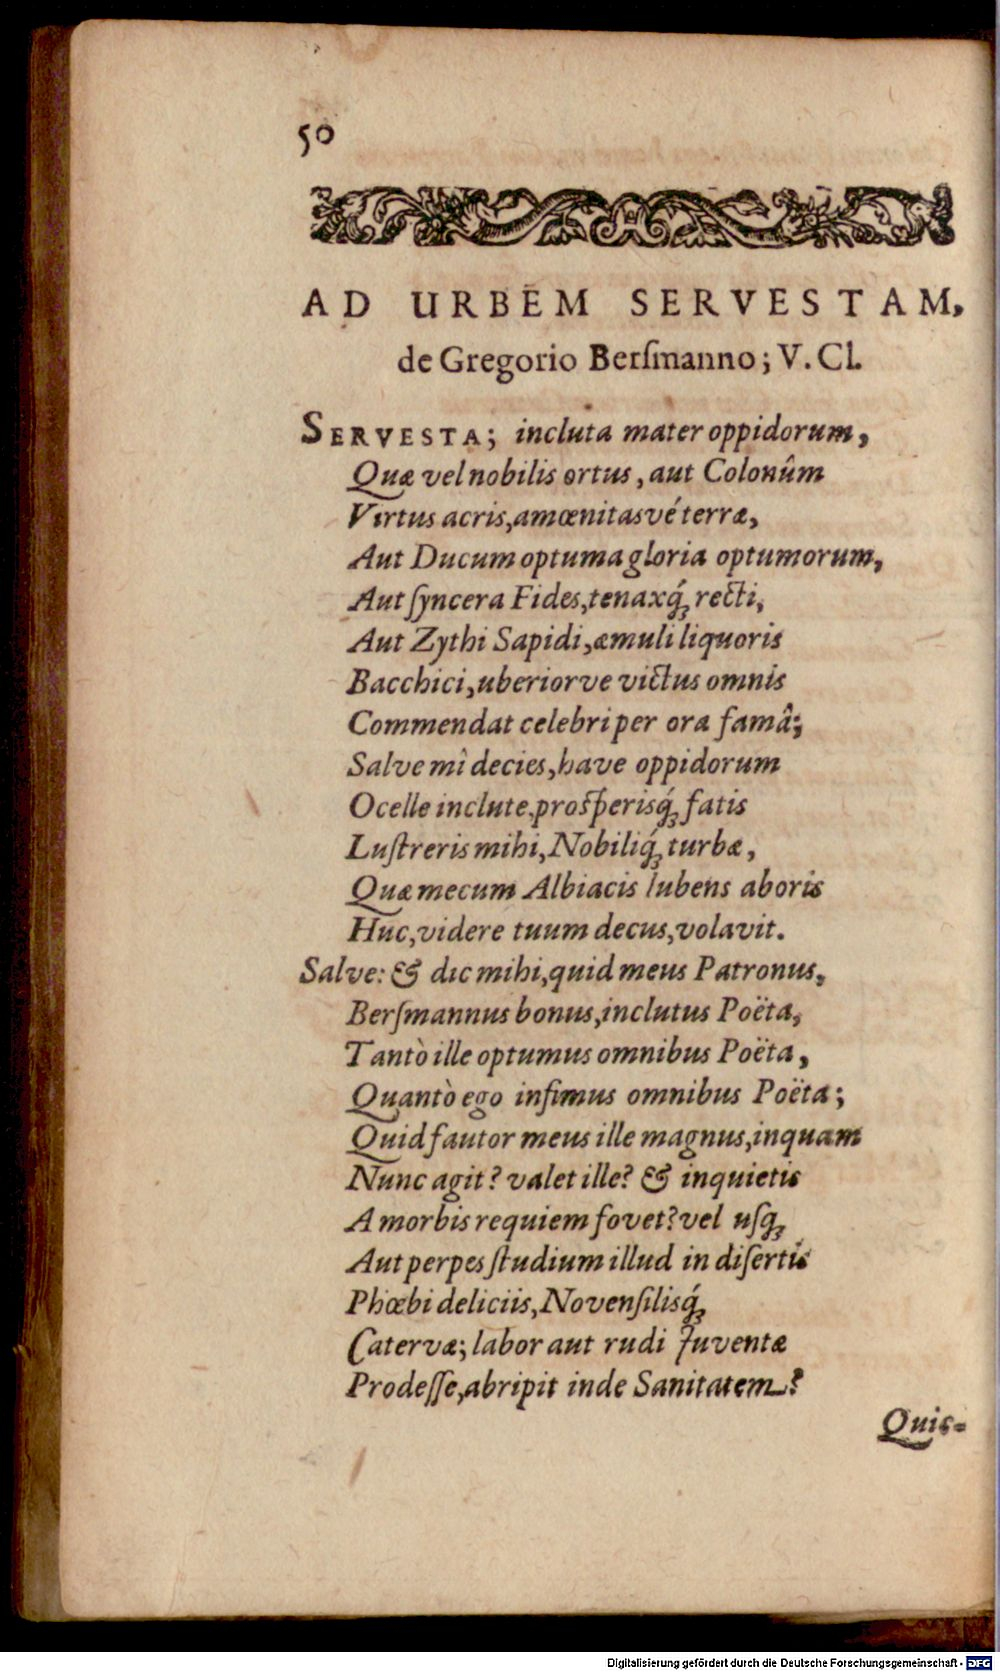 50
AD URBEM SERVESTAM,
de Gregorio Berſmanno; V. Cl.
SERVESTA; incluta mater oppidorum,
Quæ vel nobilis ortus, aut Colonûm
Virtus acris, amœnitasvé terræ,
Aut Ducum optuma gloria optumorum,
Aut ſyncera Fides, tenaxq́ꝫ recti,
Aut Zythi Sapidi, æmuli liquoris
Bacchici, uberiorve victus omnis
Commendat celebri per ora famâ;
Salve mî decies, have oppidorum
Ocelle inclute, proſperisq́ꝫ fatis
Luſtreris mihi, Nobiliq́ꝫ turbæ,
Quæ mecum Albiacis lubens ab oris
Huc, videre tuum decus, volavit.
Salve: & dic mihi, quid meus Patronus,
Berſmannus bonus, inclutus Poëta,
Tantò ille optumus omnibus Poëta,
Quantò ego infimus omnibus Poëta;
Quid fautor meus ille magnus, inquam
Nunc agit? valet ille? & inquietis
A morbis requiem fovet? vel uſqꝫ
Aut perpes ſtudium illud in diſertis
Phœbi deliciis, Novenſilisq́ꝫ
Catervæ; labor aut rudi Juventæ
Prodeſſe, abripit inde Sanitatem?
Quis-
Digitalisierung gefördert durch die Deutsche Forschungsgemeinschaft - DFG